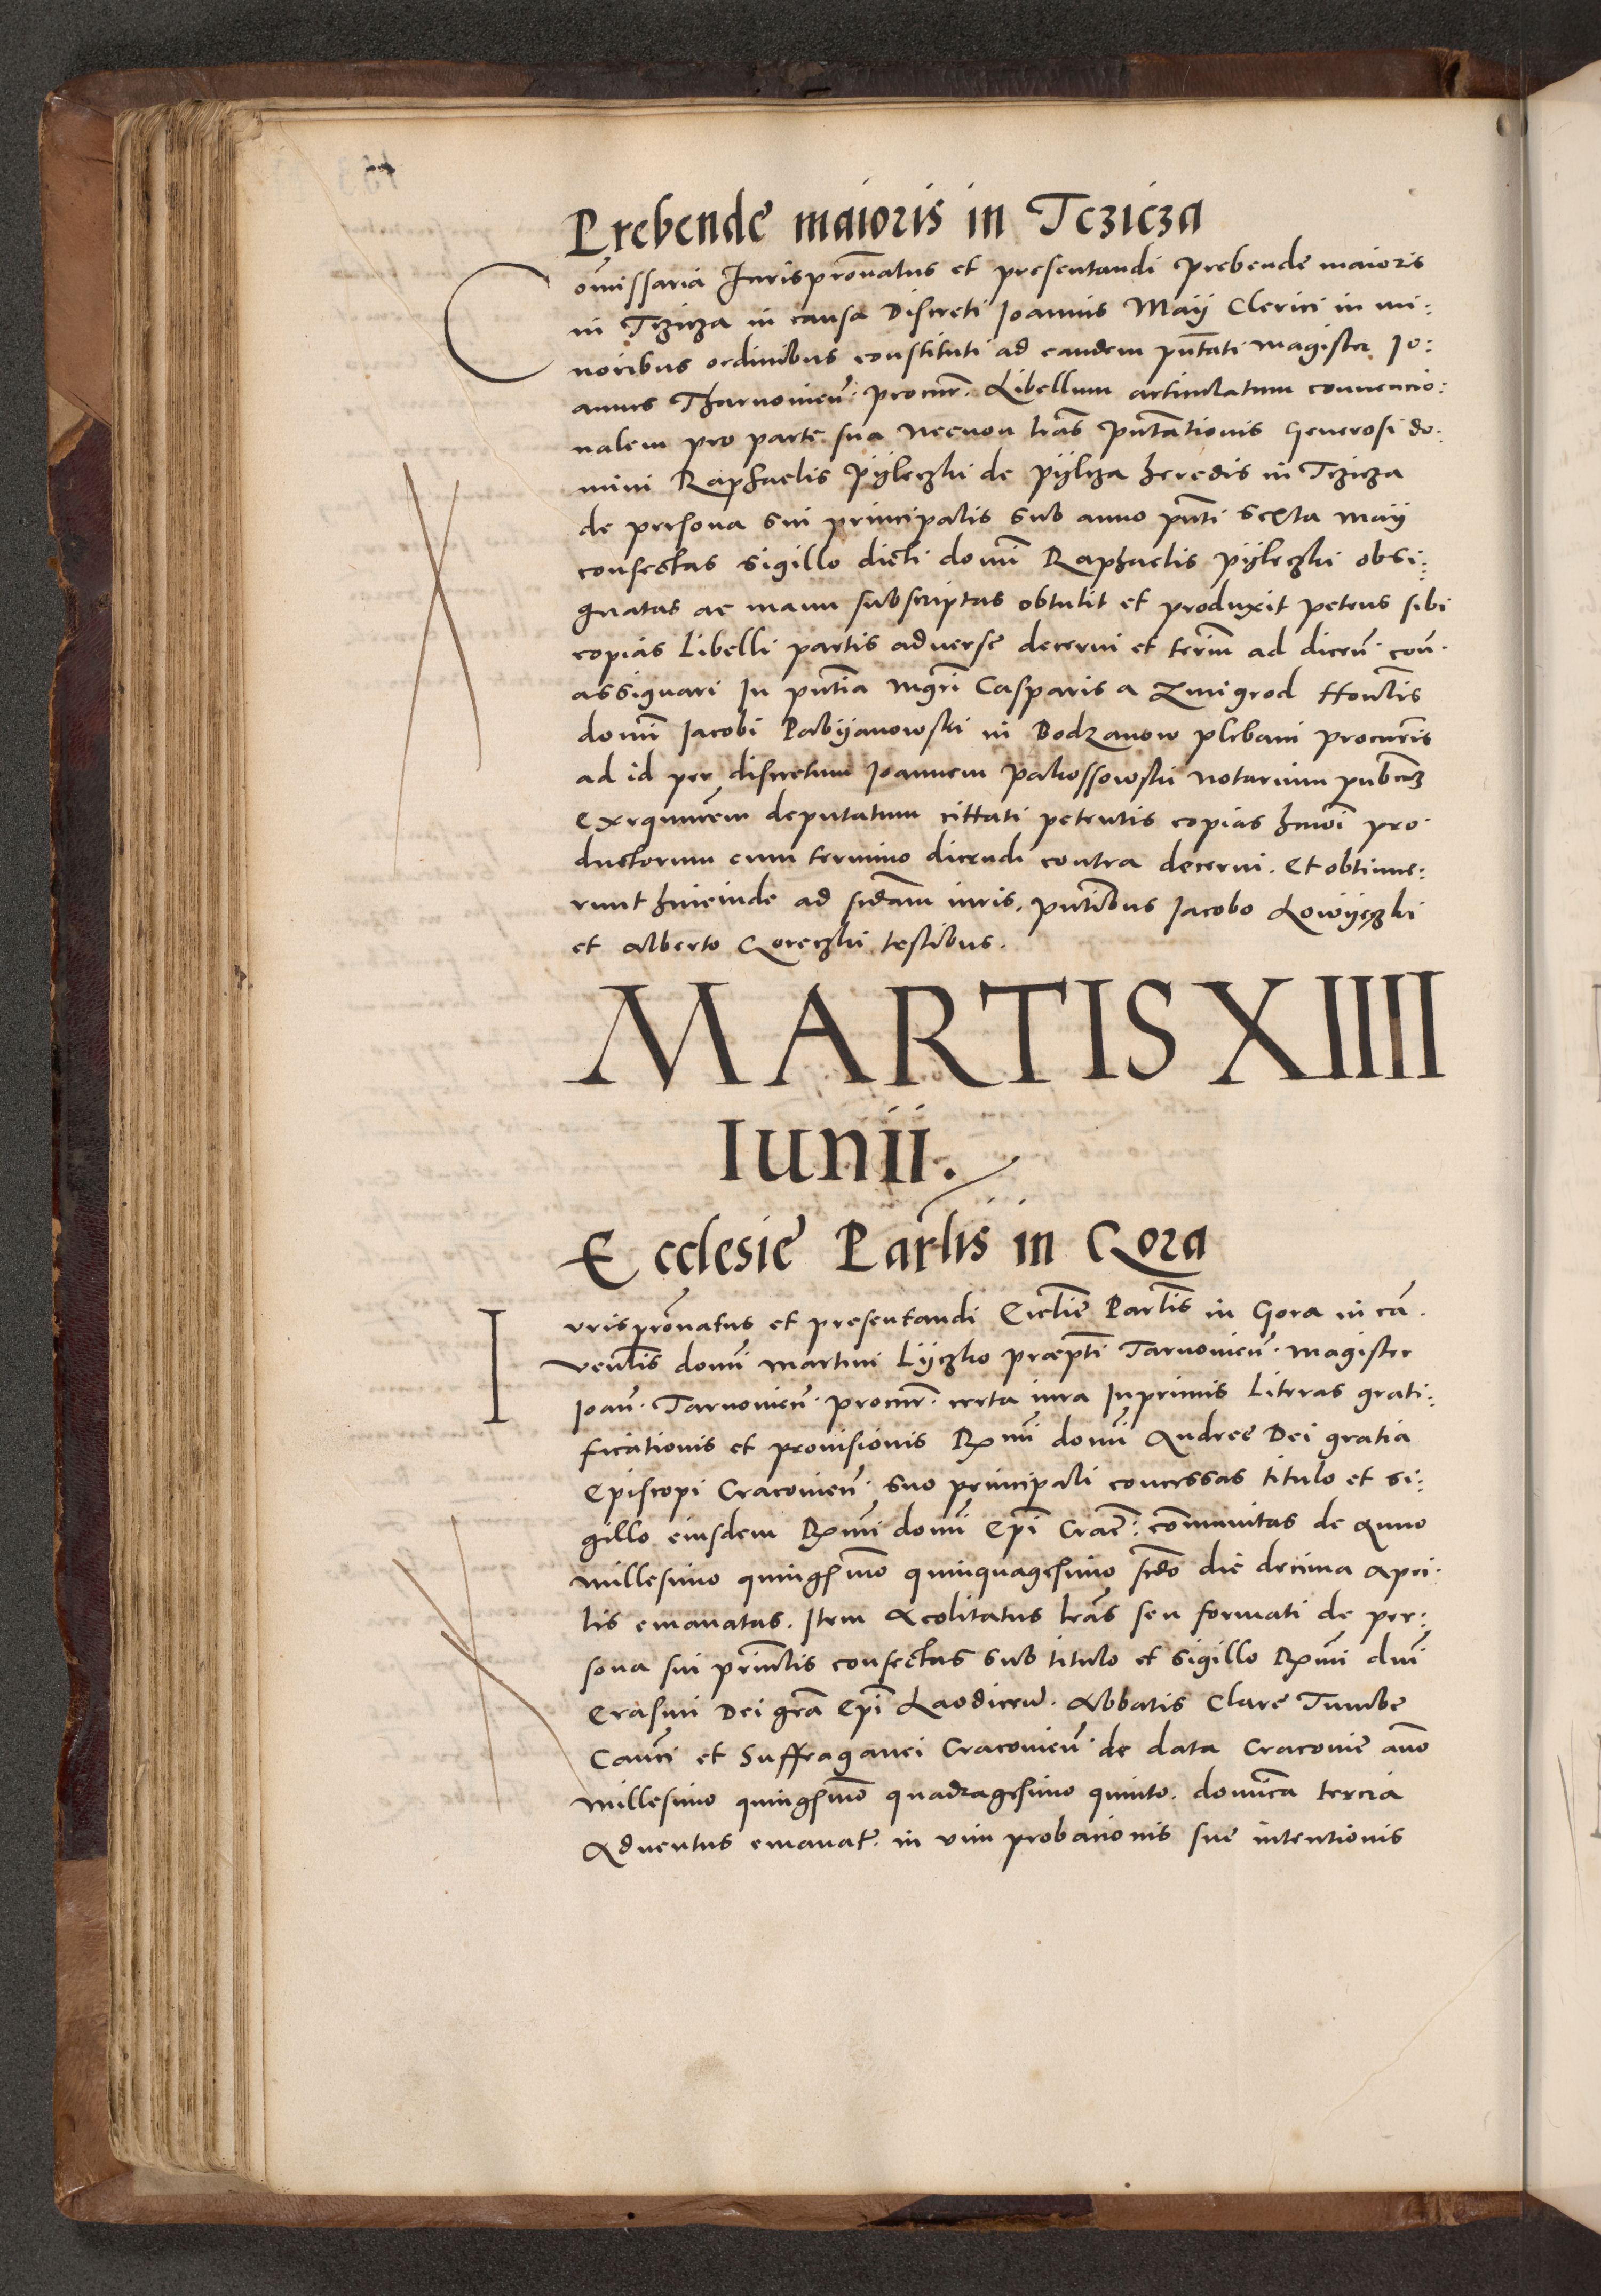 Prebende maioris in Tczicza
Com̃issaria Jurispr̃onatus et presentandi prebende maioris
in Tczicza in causa Discreti Joannis Maij Clerici in mi:
noribus ordinibus constituti ad eandem pñtati magister Jo:
annes Tharnovieñ. procur̃. Libellum articulatum convencio:
nalem pro parte sua necnon lr̃as pñtationis Generosi do:
mini Raphaelis Pijleczki de Pijlcza heredis in Tczicza
de persona sui principalis sub anno pñti sexta maij
confectas sigillo dicti domi Raphaelis Pijleczki obsi:
gnatas ac manu subscriptas obtulit et produxit petens sibi
copias Libelli partis adverse decerni et term̃ ad diceñ. coñ.
assignari In pñtia mgr̃i Casparis a Zmigrod Honlis
domĩ Jacobi Pabijanowski in Bodzanow plebani procuris
ad id per discretum Joannem Pakossowski notarium pubcz̃
Exequutorem deputatum cittati petentis copias hmoĩ pro
ductorum cum termino dicendi contra decerni. Et obtinue:
runt hincinde ad scdam iuris. pñtibus Jacobo Lowijczki
et Alberto Goreczki testibus.
MARTIS XIIII
Iunii.
Ecclesie Par̃lis in Gora
Jurispr̃onatus et presentandi Ecclie Parlis in Gora in cã.
venlis domĩ Martini Lijczko præpti Tarnovieñ. magister
Joañ. Tarnovieñ. procur̃. certa iura Inprimis Literas grati:
ficationis et provisionis Rmi domĩ Andree Dei gratia
Episcopi Cracovieñ. suo principali concessas titulo et si:
gillo eiusdem Rmi domĩ Epĩ Crac̃: com̃unitas de Anno
millesimo quingsmo quinquagesimo scdo die decima Apri:
lis emanatas. Item Acolitatus lr̃as seu formati de per:
sona sui princlis confectas sub titulo et sigillo Rmi dnĩ
Erasmi Dei gr̃a Epĩ Laodiceñ. Abbatis Clare Tumbe
Canci et Suffraganei Cracovieñ. de data Cracovie año
millesimo quingsmo quadragesimo quinto. domĩca tercia
Adventus emanat̃. in vim probacionis sue intentionis